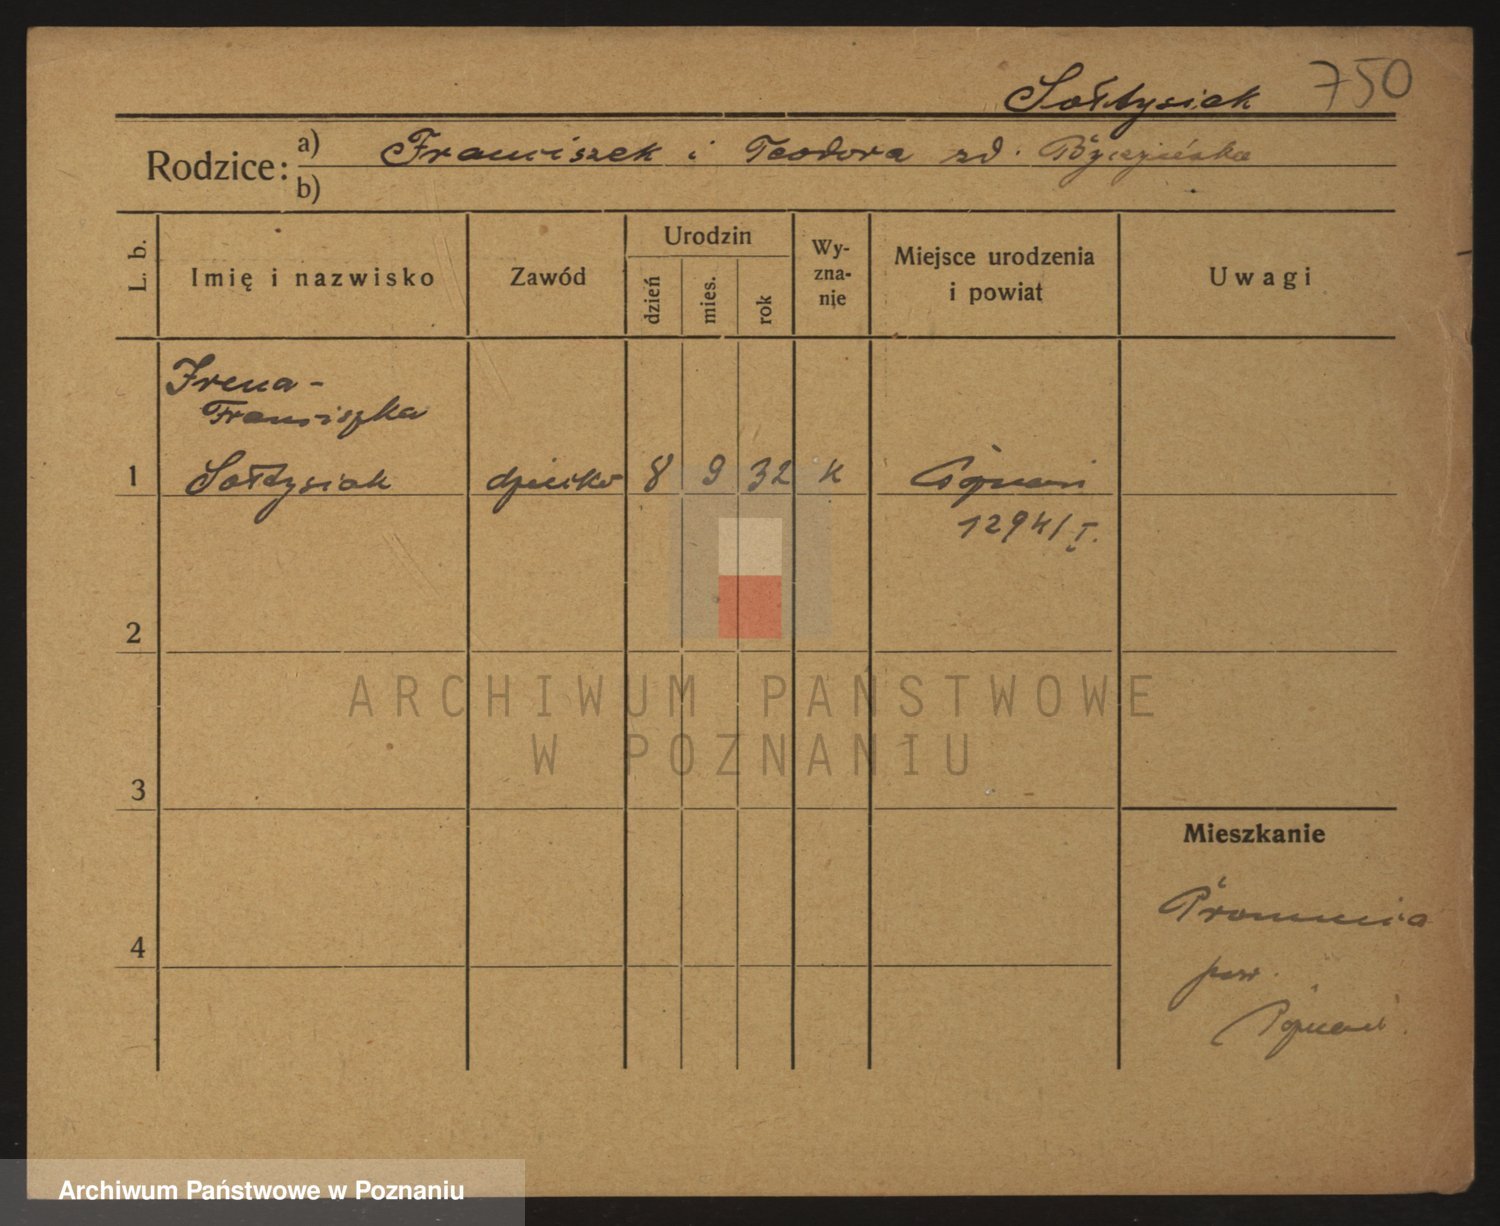 Sołtysiak 750
Rodzice: a) Franciszek i Teodora zd.
b)
L. b.
Imię i nazwisko
Zawód
Urodzin
dzień
mies.
rok
Wy-
zna-
nie
Miejsce urodzenia
i powiat
Uwagi
Irena-
Franciszka
1 Sołtysiak dziecko 8 9 32 k Poznań
1294/I.
2
3
4
Mieszkanie
Promnica
pow.
Poznań.
ARCHIWUM PAŃSTWOWE
W POZNANIU
Archiwum Państwowe w Poznaniu